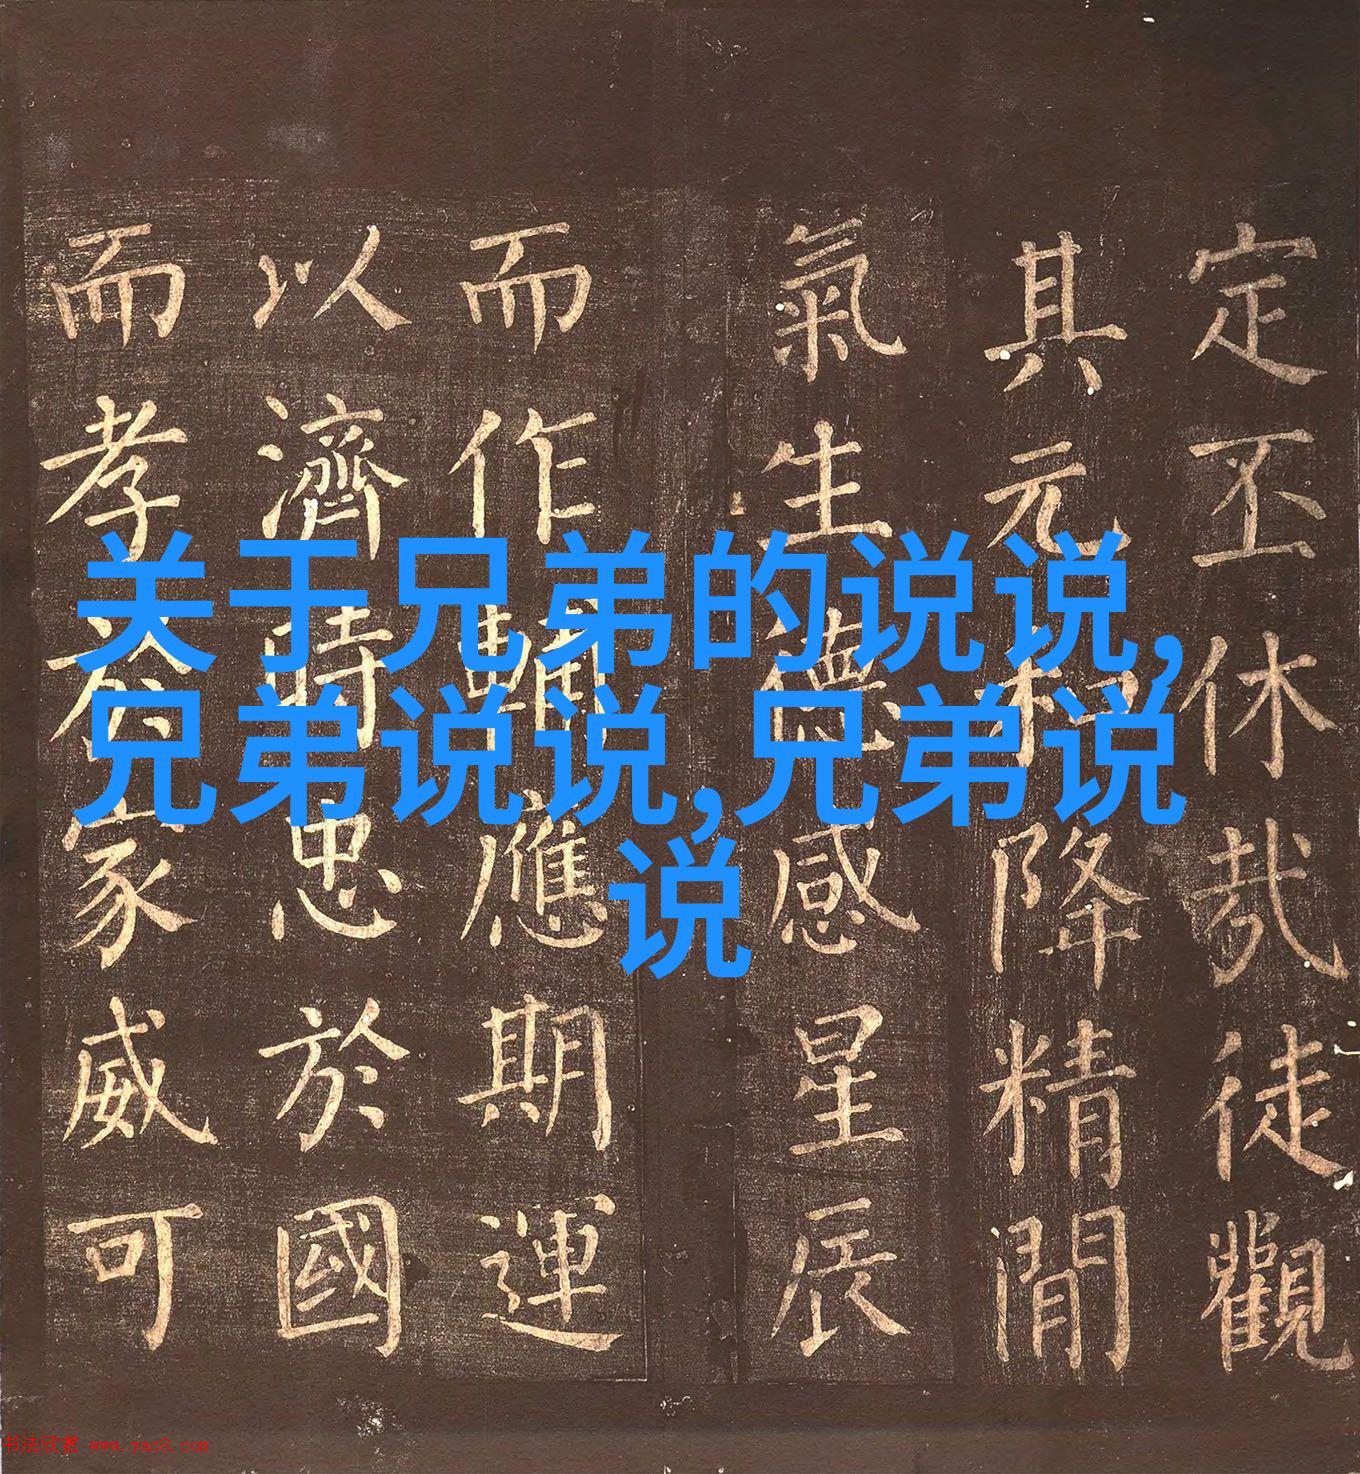 关于兄弟的说说,
兄弟说说,兄弟说
说
定丕休哉徒觀
其元和降精閒
氣生德感星辰
而作輔應期運
以濟時忠於國
而孝於家威可
书法欣赏 www.yac8.com